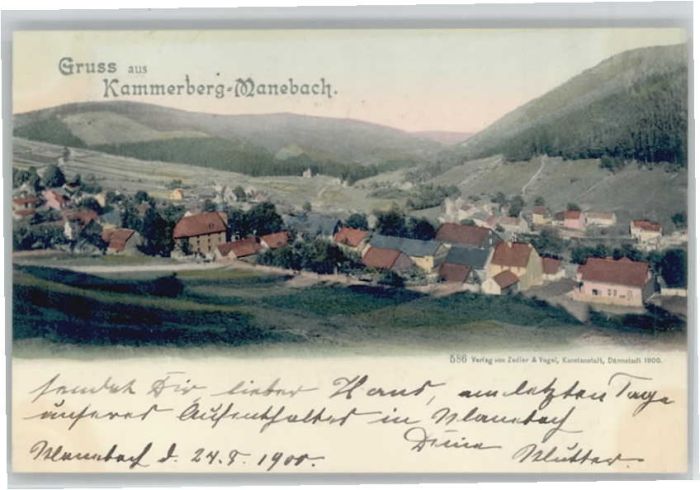 Gruss aus
Kammerberg-Manebach.
586 Verlag von Zedler & Vogel, Kunstanstalt, Darmstadt 1900.
sendet Dir lieber Hans, am letzten Tage
unseres Aufenthaltes in Manebach
Deine Mutter.
Manebach d. 24. 8. 1900.